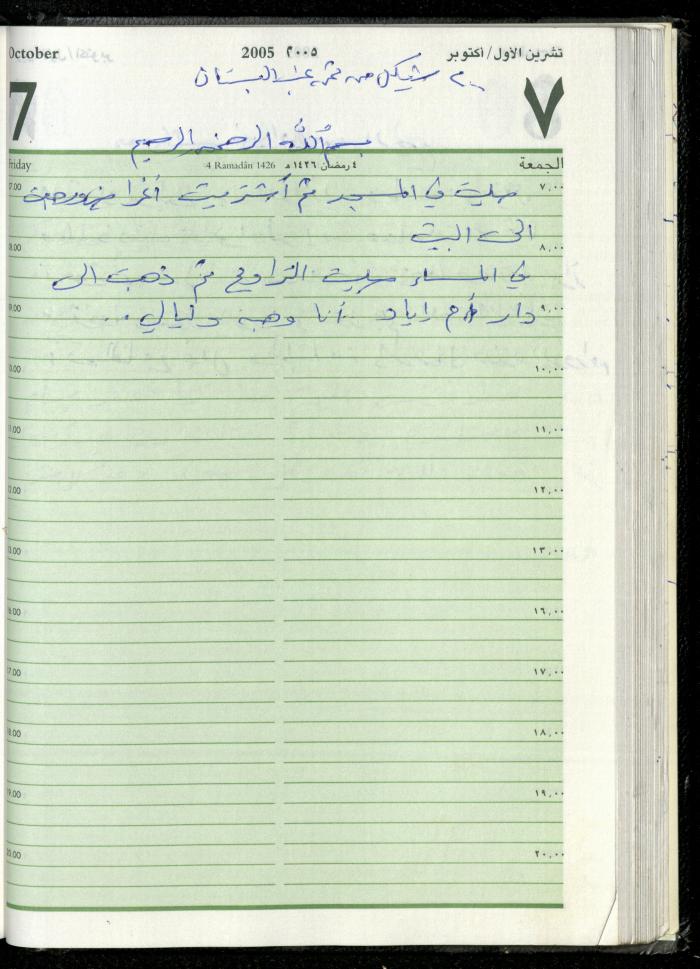 October 2005 ٢٠٠٥ تشرين الأول/أكتوبر
٢٠٠ شيكل من ثمن عنب البستان
7 ٧
بسم الله الرحمن الرحيم
Friday 4 Ramadân 1426 ٤ رمضان ١٤٢٦ هـ الجمعة
7.00 صليت في المسجد ثم أشتريت أغراض ورجعت ٧,٠٠
الى البيت
8.00 ٨,٠٠
في المساء صليت التراويح ثم ذهبت الى
9.00 دار أم اياد أنا وهبة وليالي ... ٩,٠٠
10.00 ١٠,٠٠
11.00 ١١,٠٠
12.00 ١٢,٠٠
13.00 ١٣,٠٠
16.00 ١٦,٠٠
17.00 ١٧,٠٠
18.00 ١٨,٠٠
19.00 ١٩,٠٠
20.00 ٢٠,٠٠